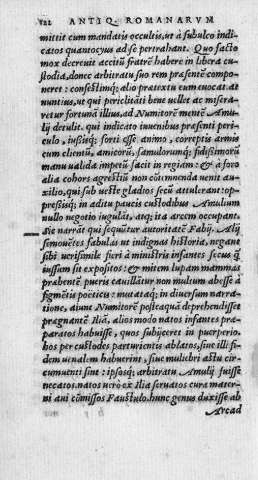 122 ANTIQ. ROMANARVM
mittit cum mandatis occultis, ut à subulco indi-
catos quantocyus ad se pertrahant. Quo facto
mox decreuit accitū fratrē habere in libera cu-
stodia, donec arbitratu suo rem præsentē compo-
neret: confestimq; alio prætextu eum euocat. at
nuntius, ut qui periclitāti bene uellet ac miserа-
retur fortunā illius, ad Numitorē mentē Amu-
lij detulit. qui indicato iuuenibus præsenti peri-
culo, iussisq; forti esse animo, correptis armis
cum clientū, amicorū, famulorumq; fidissimorū
manu ualida impetū facit in regiam: & à foro
alia cohors agrestiū non cōtemnenda uenit au-
xilio, qui sub ueste gladios secū attulerant: op-
pressisq; in aditu paucis custodibus Amulium
nullo negotio iugulāt, atq; ita arcem occupant.
Sic narrat qui sequūtur autoritatē Fabij. Alij
semouētes fabulas ut indignas historia, negant
sibi uerisimile fieri à ministris infantes secus q̄
iussum sit expositos: & mitem lupam mammas
præbentē pueris cauillatur non multum abesse à
figmētis poeticis: mutataq; in diuersum narra-
tione, aiunt Numitorē posteaquā deprehendisset
prægnantē Iliā, alios modo natos infantes præ-
paratos habuisse, quos subijceret in puerperio:
hos per custodes parturientis ablatos, siue illi fi-
dem uenalem habuerint, siue muliebri astu cir-
cumuenti sint: ipsosq; arbitratu Amulij fuisse
necatos. natos uerò ex Ilia seruatos cura mater-
ni aui cōmissos Faustulo. hunc genus duxisse ab
Arcad